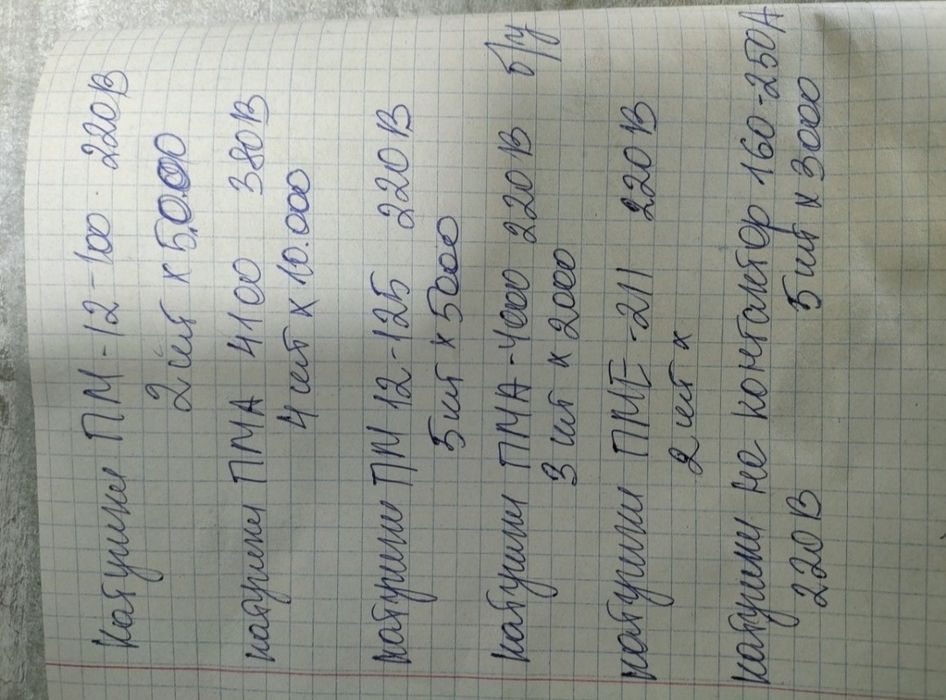 Катушки ПМ-12-100 220В
2 шт х 5.000
катушки ПМА 4100 380В
4 шт х 10.000
катушки ПМ 12-125 220В
5 шт х 5000
катушки ПМА-4000 220В б/у
3 шт х 2000
катушки ПМЕ-211 220В
2 шт х
катушки на контактор 160-250А
220В 5 шт х 3000